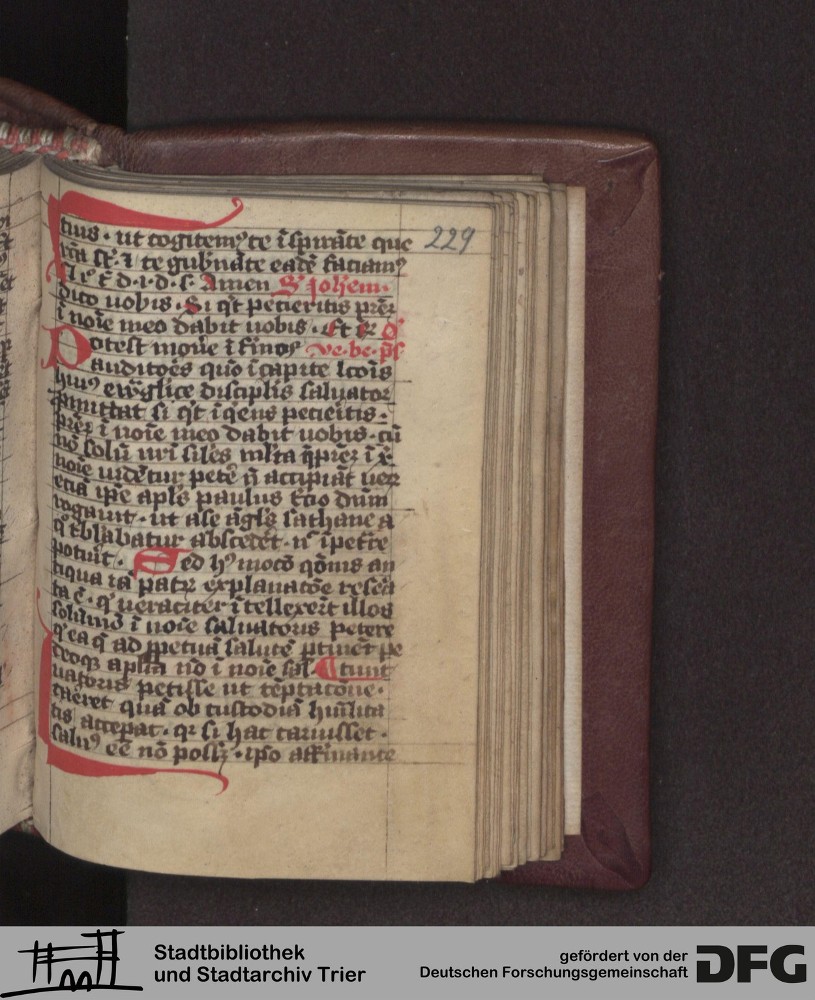 tius · ut cogitem⁹ te ī spirāte que
229
rc̄ta st̄ · ⁊ te gub̄nāte eadē faciam⁹
d · i · d · s · Amen S' Johem ·
dico uobis · Si q̄t petieritis pr̄em
ī noīe meo dabit uobis · Et
Potest moūe īfirmos ve · be · pb̄
auditoēs quō ī capite lc̄ois
hui⁹ ewāglice discip̄lis saluator
p̄mittat si q̄t īq̄ens petieitis ·
pr̄em ī noīe meo dabit uobis · cū
nō solū nr̄i siles ml̄ta q̄ p̄rez ī x̄
noīe uidētur petē ⁊ accipiāt uerū
eciā ip̄e apl̄s paulus t̄cio dūm
rogauit · ut a se āgl̄s sathane a
q° t̄blabatur abscedēt · n̄ īpet̄re
potuit · Sed h⁹ mocō q̄ōnis an
tiqua iā patrū explanatōe resēa
ta ē · q' ueraciter ītellexērit illos
solūmō ī noīe saluatoris petere
q' ea q̄ ad p̄petuā salutē p̄tinēt pe
teoq̄ apl̄m nō ī noīe sal · tunt
uatoris petisse ut tēptatōne ·
caēret quā ob custodiā hūilita
tis accepat · q̄ si hac caruisset ·
salu⁹ eē nō poss̄ · ip̄o affirmante
Stadtbibliothek
und Stadtarchiv Trier
gefördert von der
Deutschen Forschungsgemeinschaft
DFG